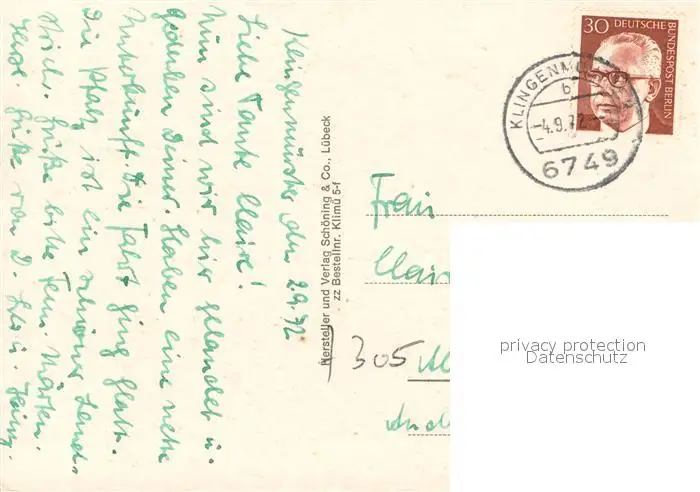 Klingenmünster den 2.9.72
Liebe Tante Claire!
Nun sind wir hier gelandet u.
gedenken Deiner. Haben eine nette
Unterkunft. Die Fahrt ging glatt.
Die Pfalz ist ein schöner
Grüße bitte
Herzl. Grüße von D.
Hersteller und Verlag Schöning & Co., Lübeck
zz Bestellnr. Klimü 5-f
30 DEUTSCHE BUNDESPOST BERLIN
KLINGENM
b
-4.9.72-
6749
Frau
Clai
305
privacy protection
Datenschutz